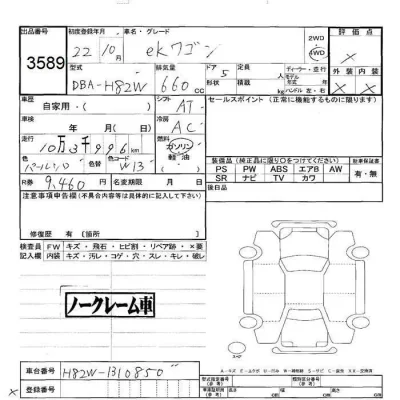 出品番号 初度登録年月 車名・グレード 2WD 評価点
3589 22年 10月 ekワゴン 4WD ×
型式 排気量 ドア 定員 ディーラー・並行 外装 内装
DBA-H82W 660cc 5 形状 積載 kg モデル 年 ハンドル 左・右 × ×
車歴 自家用・ シフト AT セールスポイント(正常に機能するものに限ります)
車検 年 月(日) 冷房 AC
走行 10万3千996km 燃料 ガソリン 軽油
色 パールシロ 色替 色コード W13 装備品(純正品に限り○をつけてください) 取車保証書
PS PW ABS エアB AW 有・無
R券 9,460円 名変期限 年 月 日 SR ナビ TV カワ
注意事項申告欄(不具合内容等は具体的に記入して下さい) 後日品
修復歴 有〔箇所 〕
検査員 FW キズ・飛石・ヒビ割・リペア跡・×要
記入欄 内装 キズ・汚レ・コゲ・穴・スレ・キレ・破レ
ノークレーム車
スペア
車台番号 H82W-1310850
登録番号 型式指定番号 類別区分番号
× 車検証有効 長さ 幅 高さ